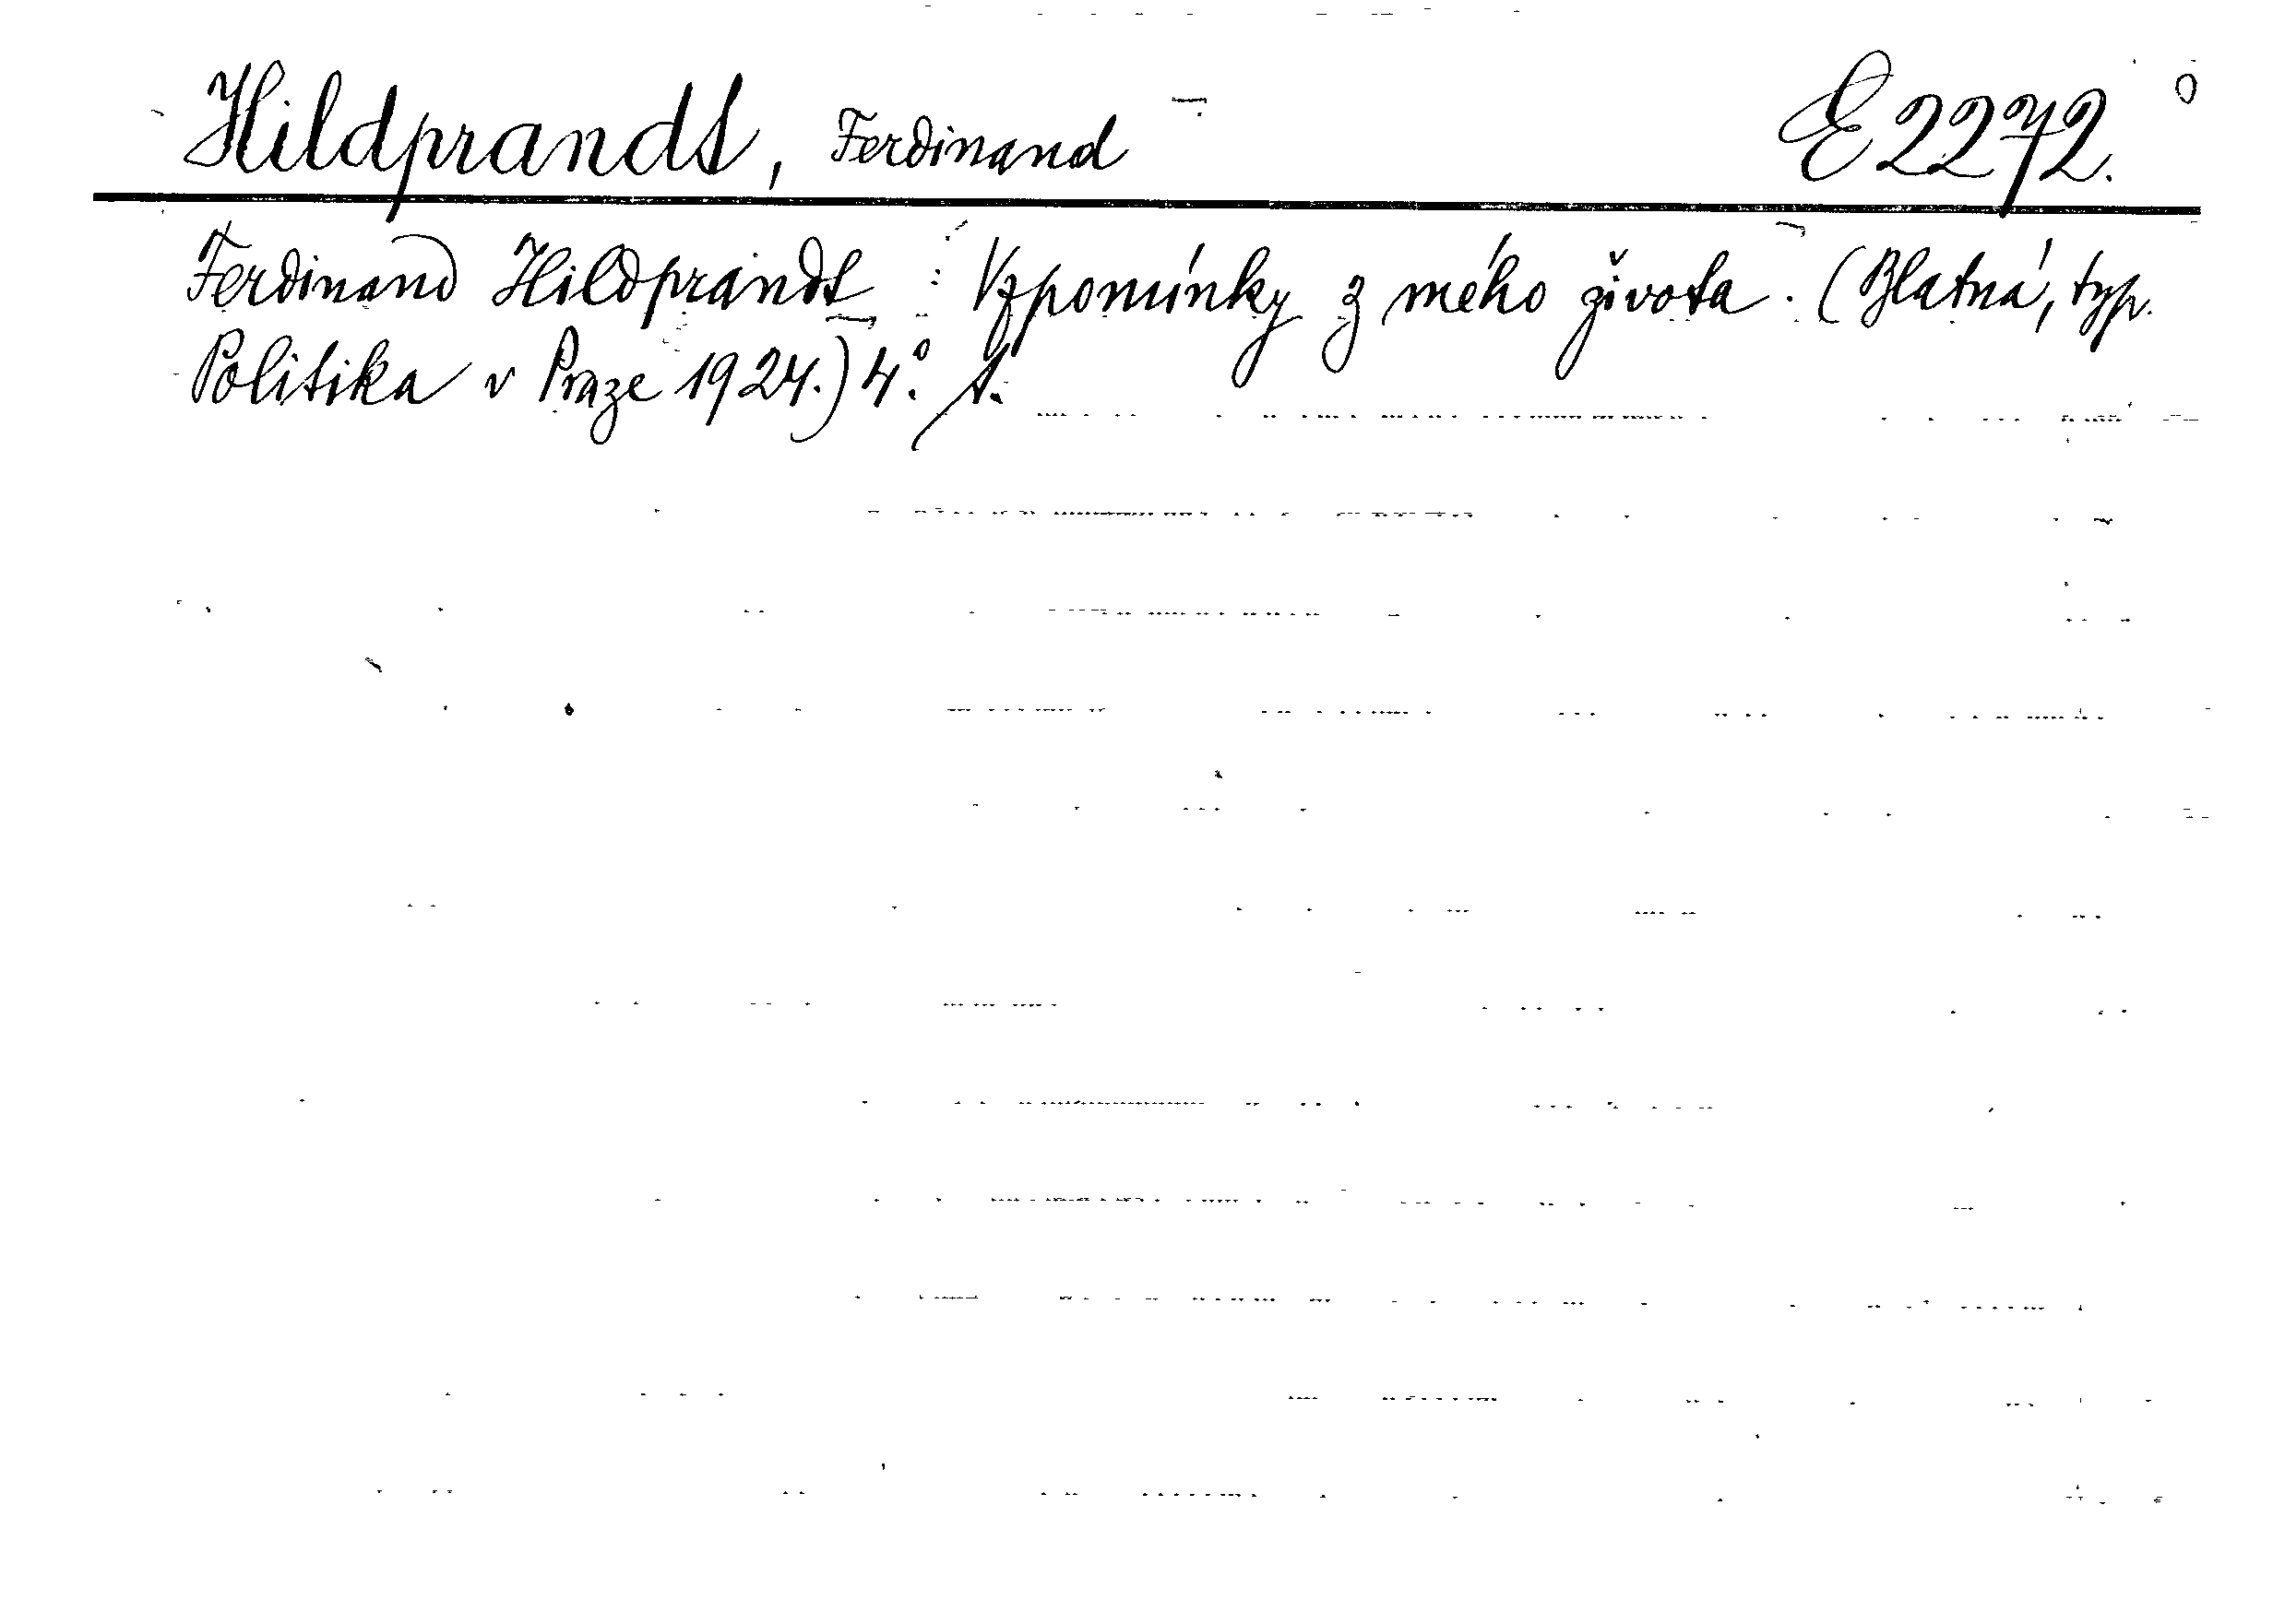 Hildprandt, Ferdinand E 2272.
Ferdinand Hildprandt : Vzpomínky z mého života. (Blatná, typ.
Politika v Praze 1924.) 4°.